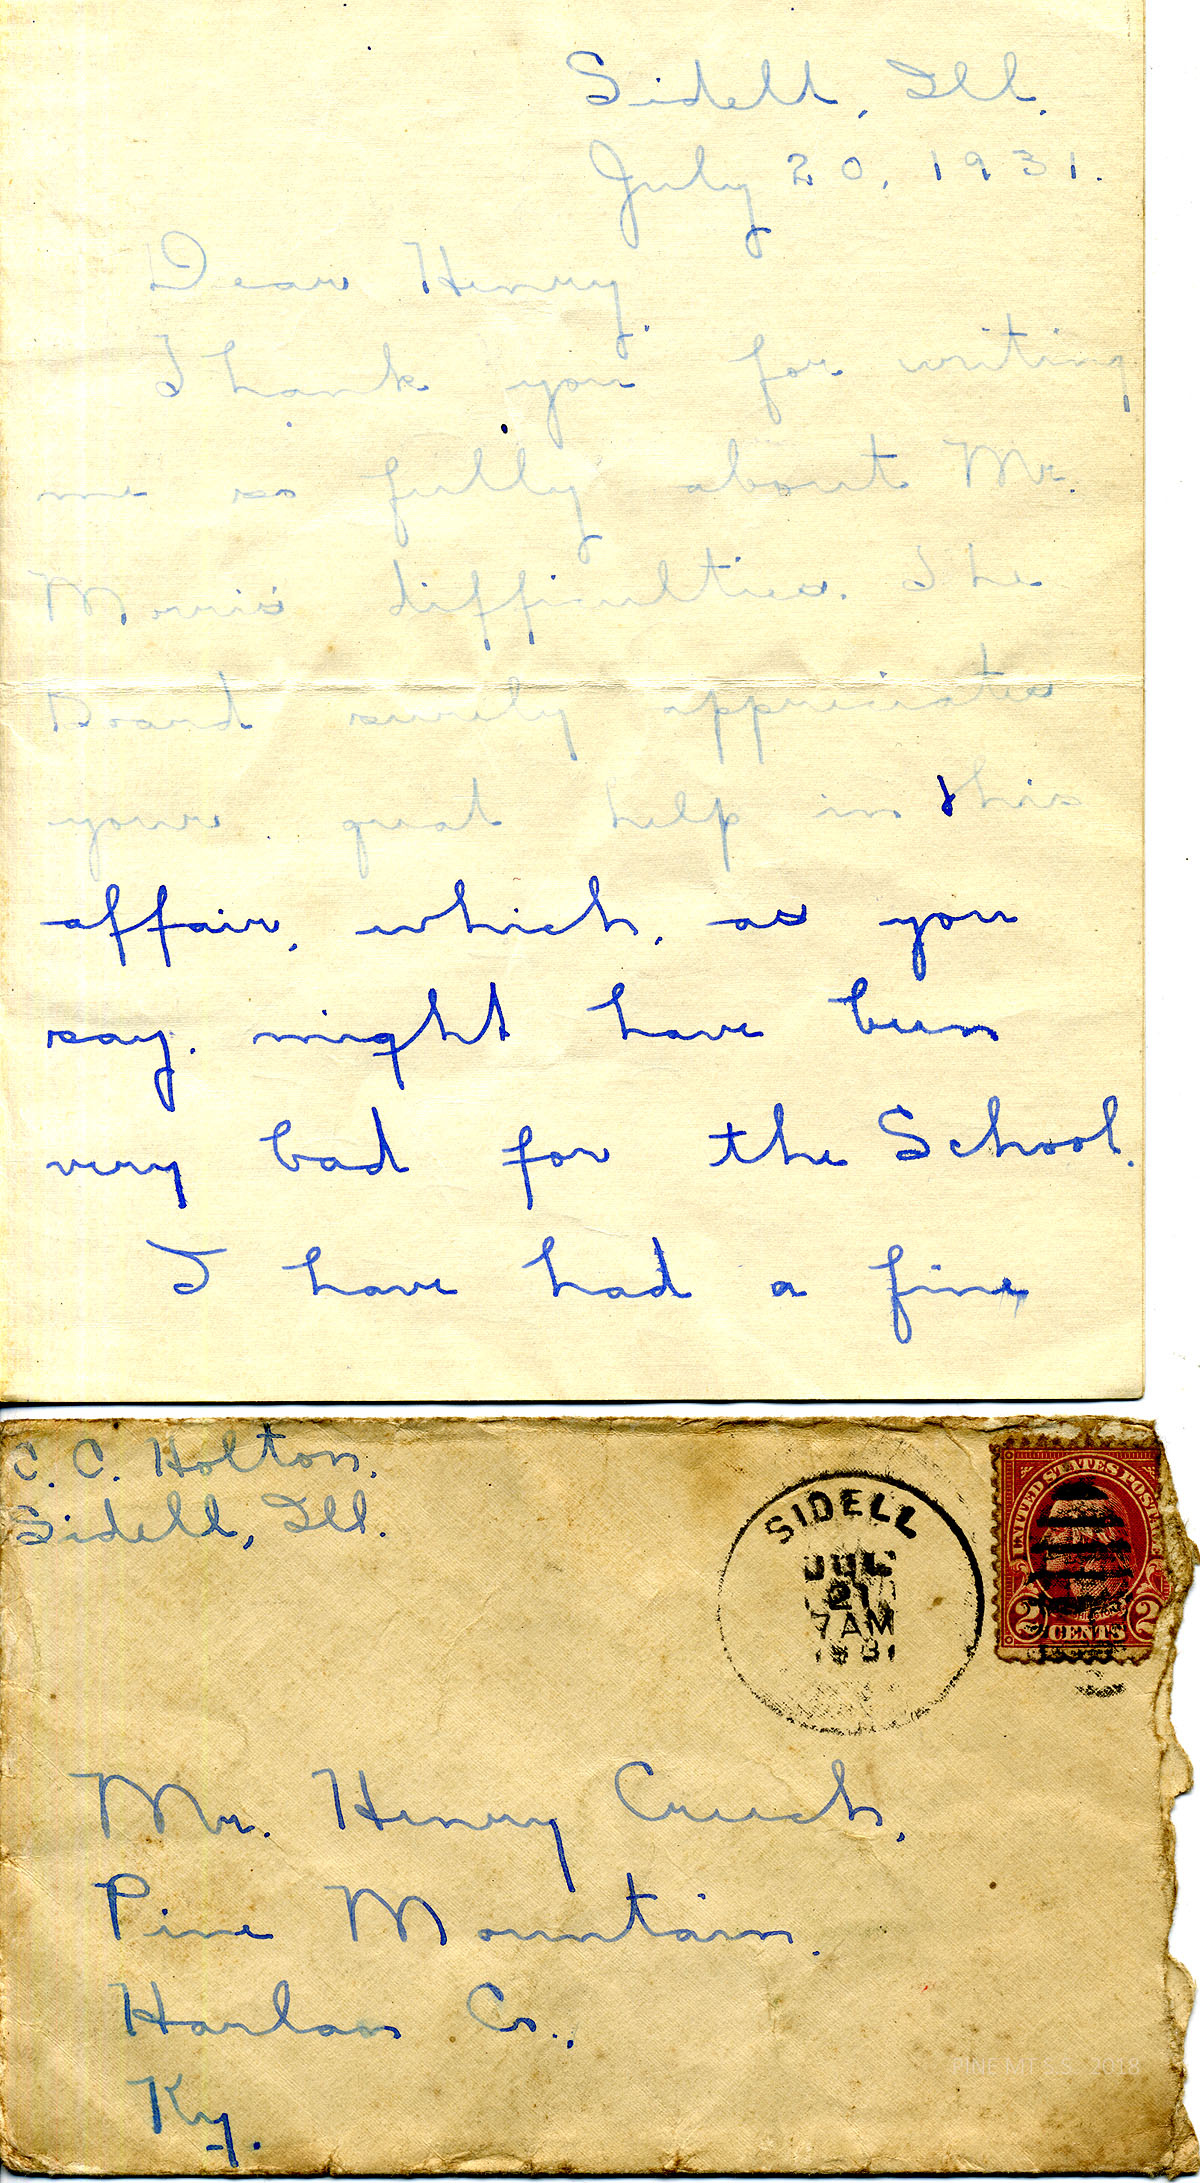 Sidell, Ill.
July 20, 1931.
Dear Henry,
Thank you for writing
me so fully about Mr.
Morris' difficulties. The
Board surely appreciates
your great help in this
affair, which, as you
say, might have been
very bad for the School.
I have had a fine
C. C. Holton,
Sidell, Ill.
SIDELL
JUL
21
7 AM
1931
UNITED STATES POSTAGE
2 CENTS 2
Mr. Henry Creech,
Pine Mountain,
Harlan Co.,
Ky.
PINE MT S.S. 2018